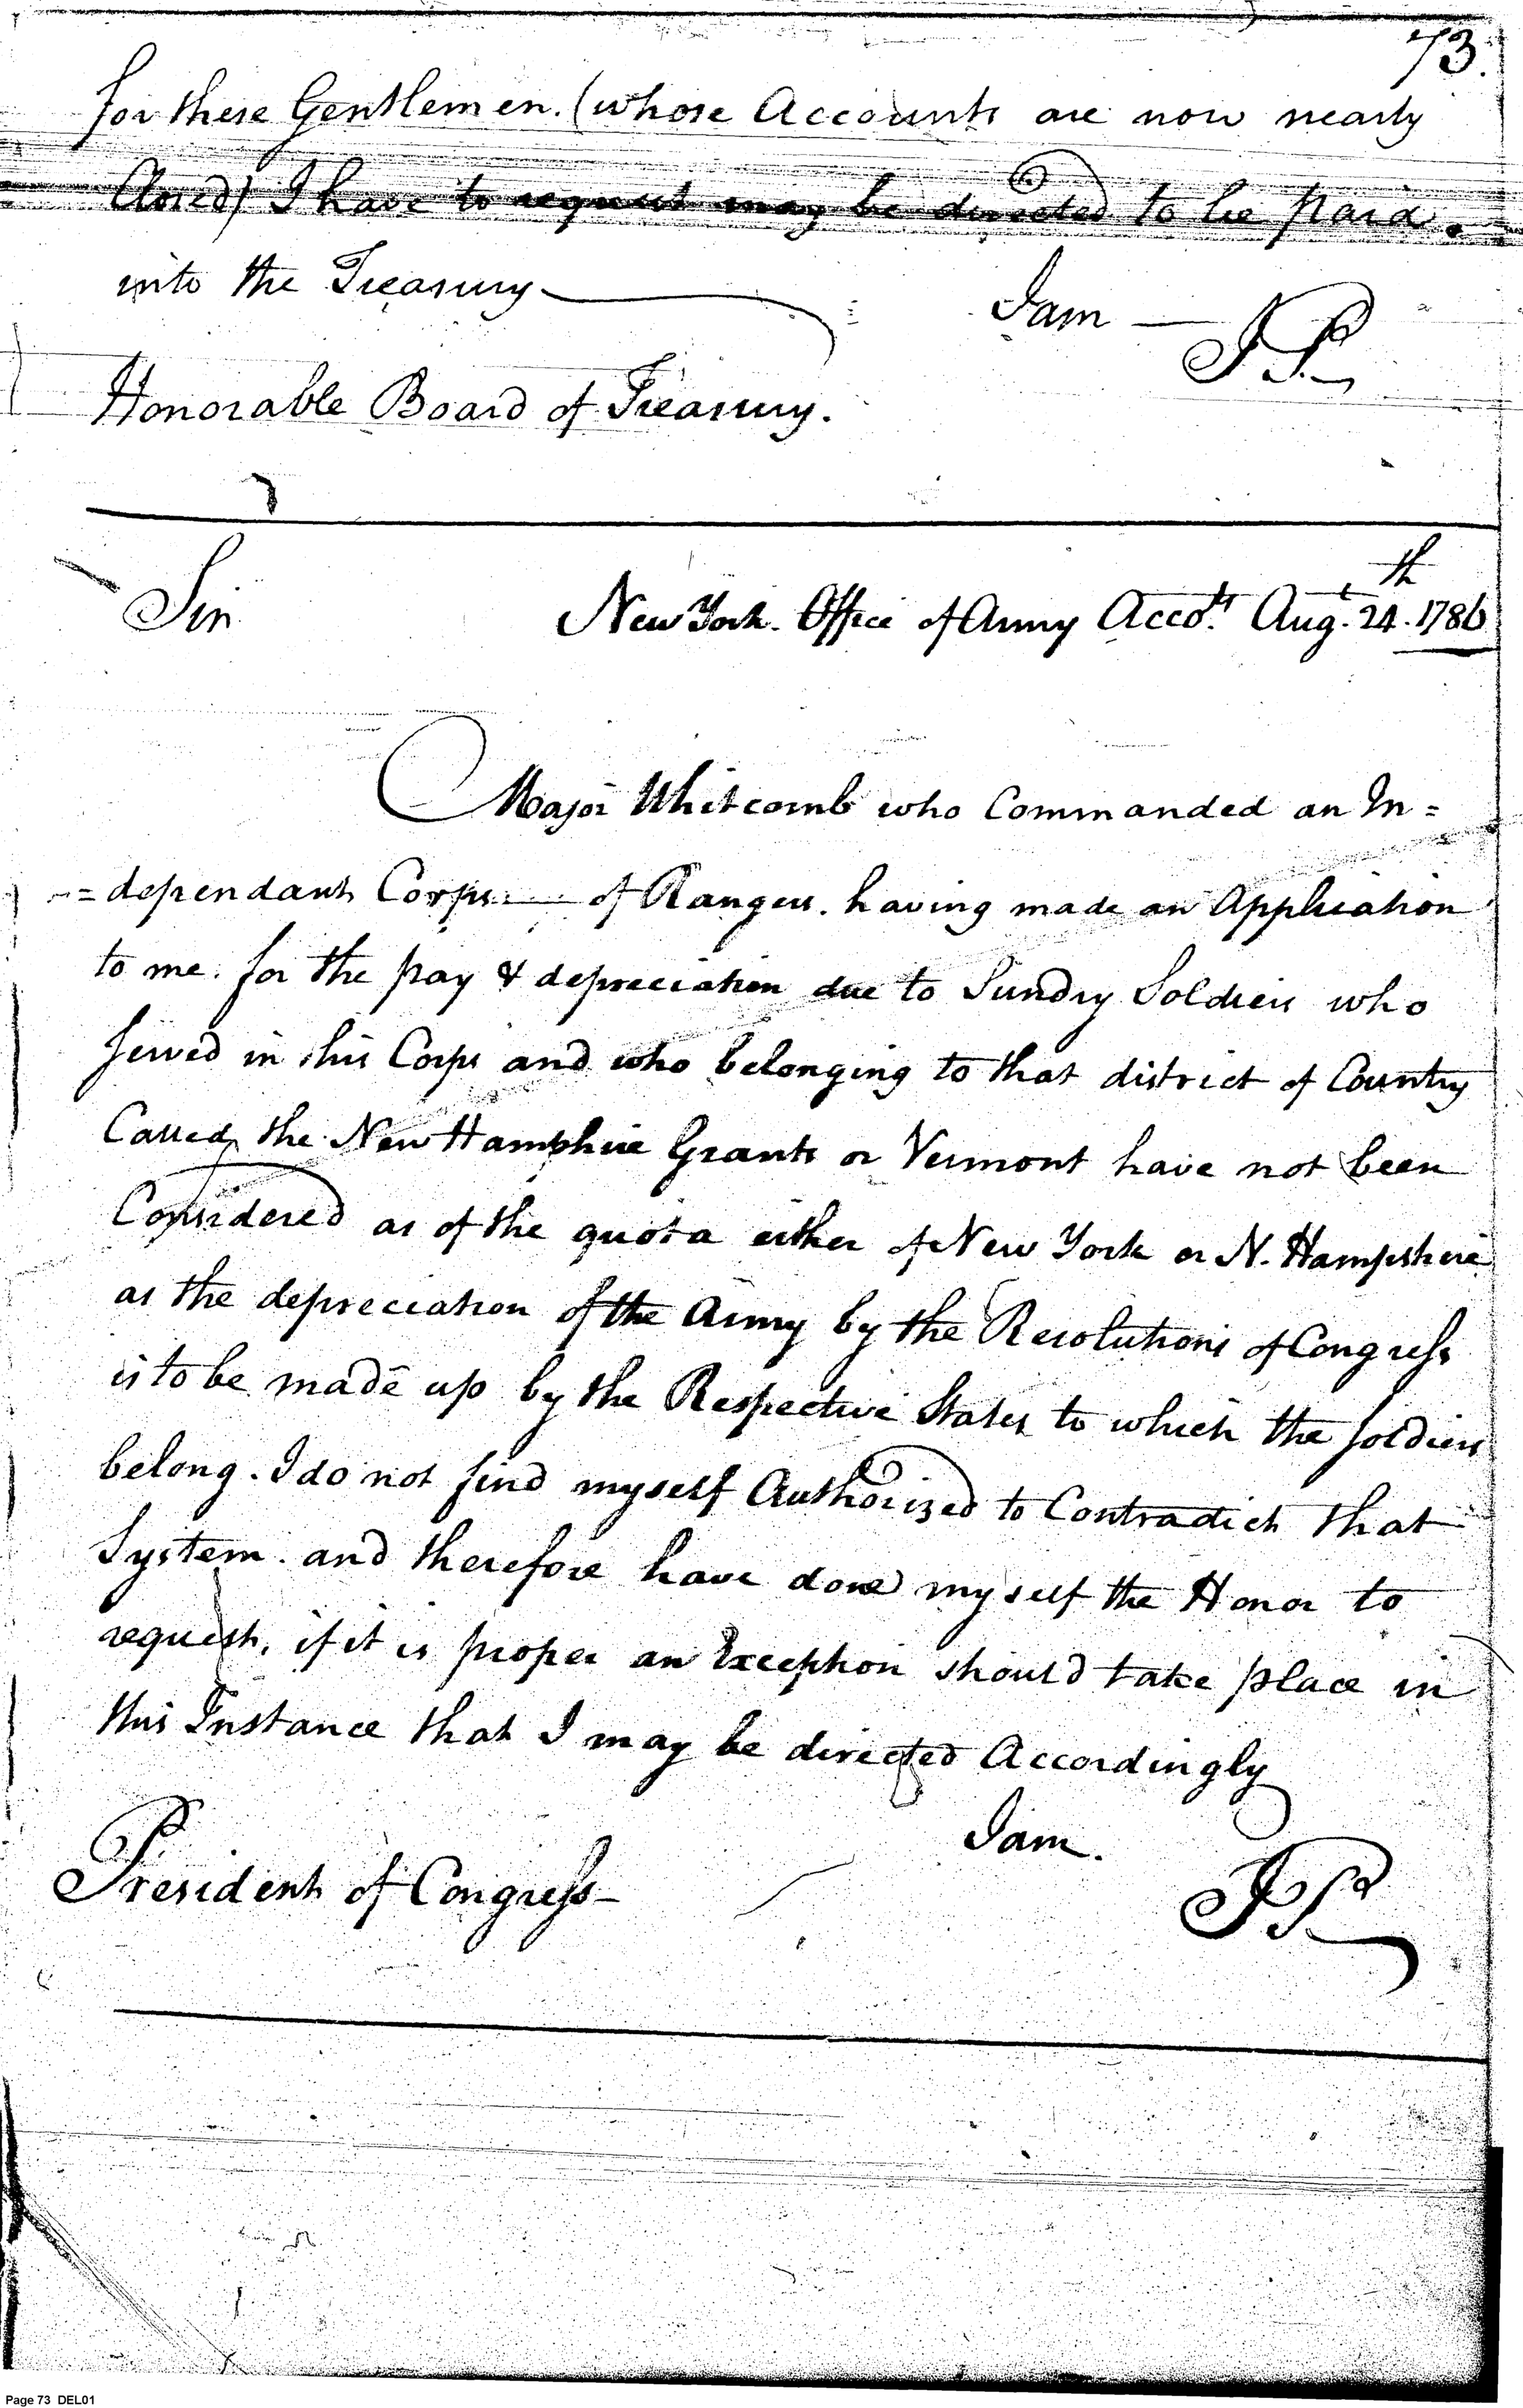 73.
for these Gentlemen. (whose Accounts are now nearly
Closed) I have to request may be directed to be paid.
into the Treasury
I am —
JP
Honorable Board of Treasury.
Sir
New York. Office of Army Accots. Augt. 24th. 1786
Major Whitcomb who Commanded an In=
=dependant Corps — of Rangers. having made an Application
to me. for the pay & depreciation due to Sundry Soldiers who
served in this Corps and who belonging to that district of Country
Called the New Hampshire Grants or Vermont have not been
Considered as of the quota either of New York or N. Hampshire
as the depreciation of the Army by the Resolutions of Congress
is to be made up by the Respective States to which the soldiers
belong. I do not find myself Authorized to Contradict that
System. and therefore have done myself the Honor to
request, if it is proper an Exception should take place in
this Instance that I may be directed Accordingly
I am.
JP
President of Congress
Page 73 DEL01